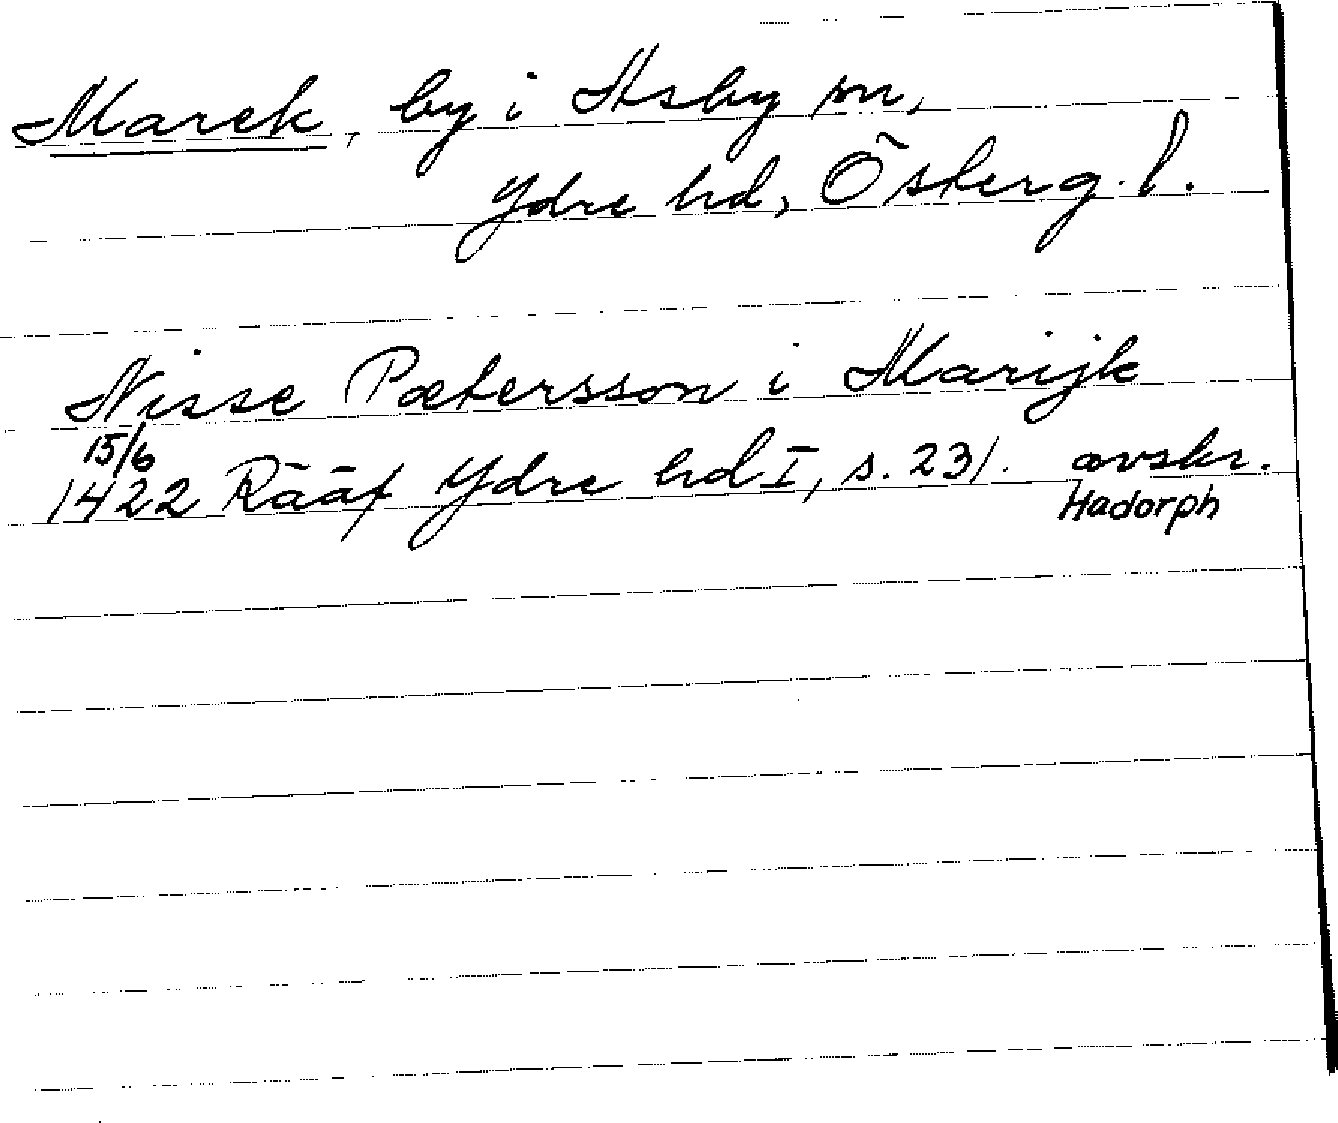 Marek, by i Asby sn,
Ydre hd, Österg. l.
Nisse Pætersson i Marijk
15/6
1422 Rääf Ydre hd I, s. 231. avskr.
Hadorph